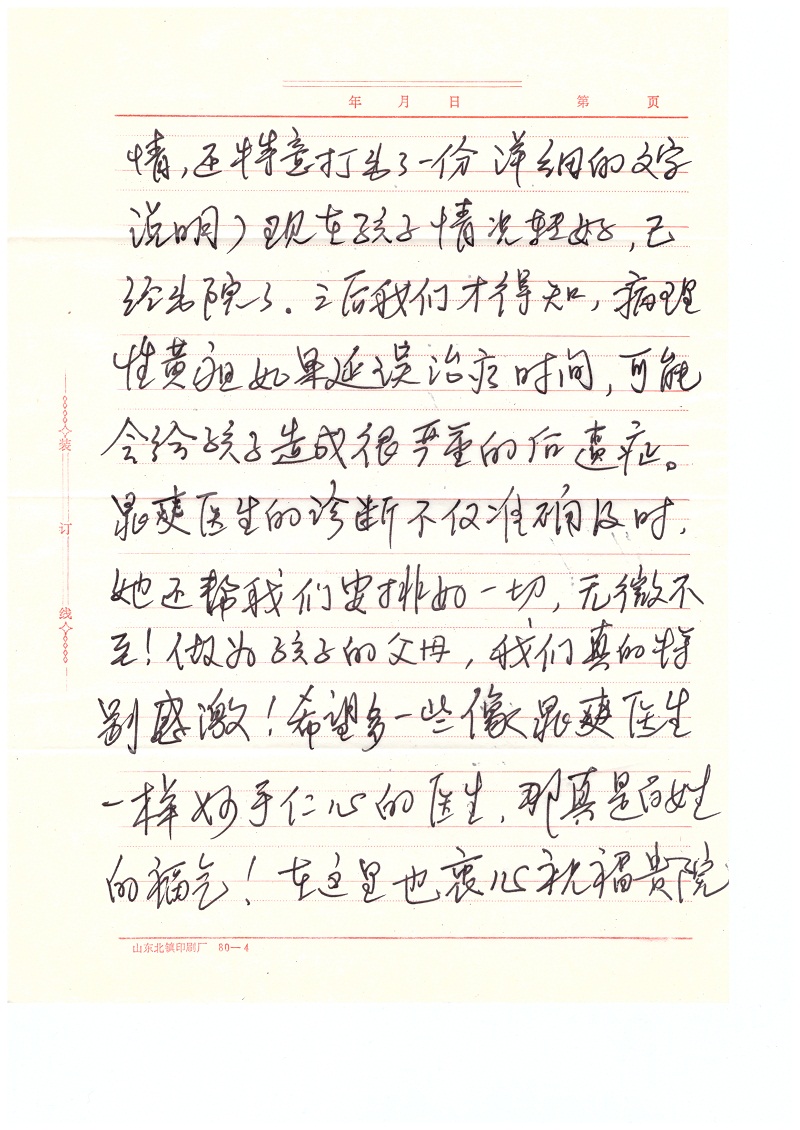 年 月 日 第 页
情,还特意打出了一份详细的文字
说明)现在孩子情况轻好,已
经出院了。之后我们才得知,病理
性黄疸如果延误治疗时间,可能
会给孩子造成很严重的后遗症。
晁爽医生的诊断不仅准确及时,
她还帮我们安排好一切,无微不
至!做为孩子的父母,我们真的特
别感激!希望多一些像晁爽医生
一样妙手仁心的医生,那真是百姓
的福气!在这里也衷心祝福贵院
装
订
线
山东北镇印刷厂 80—4